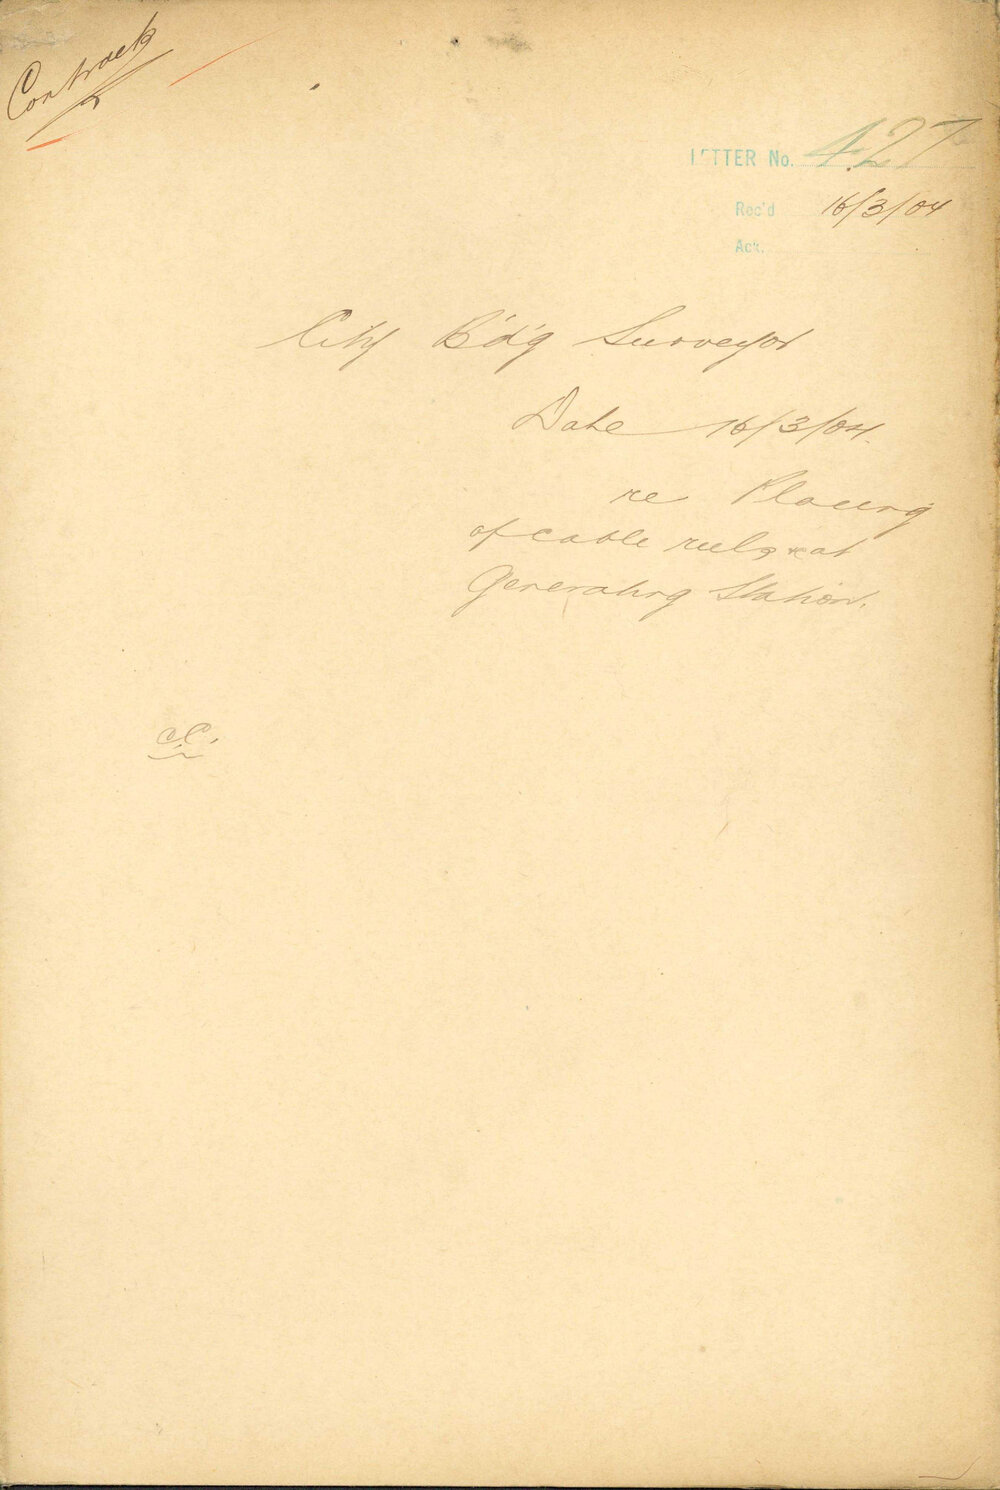 Contracts
LETTER No. 427
Rec'd 16/3/04
Ack.
City B'd'g Surveyor
Date 16/3/04.
re Placing
of cable reels at
Generating Station.